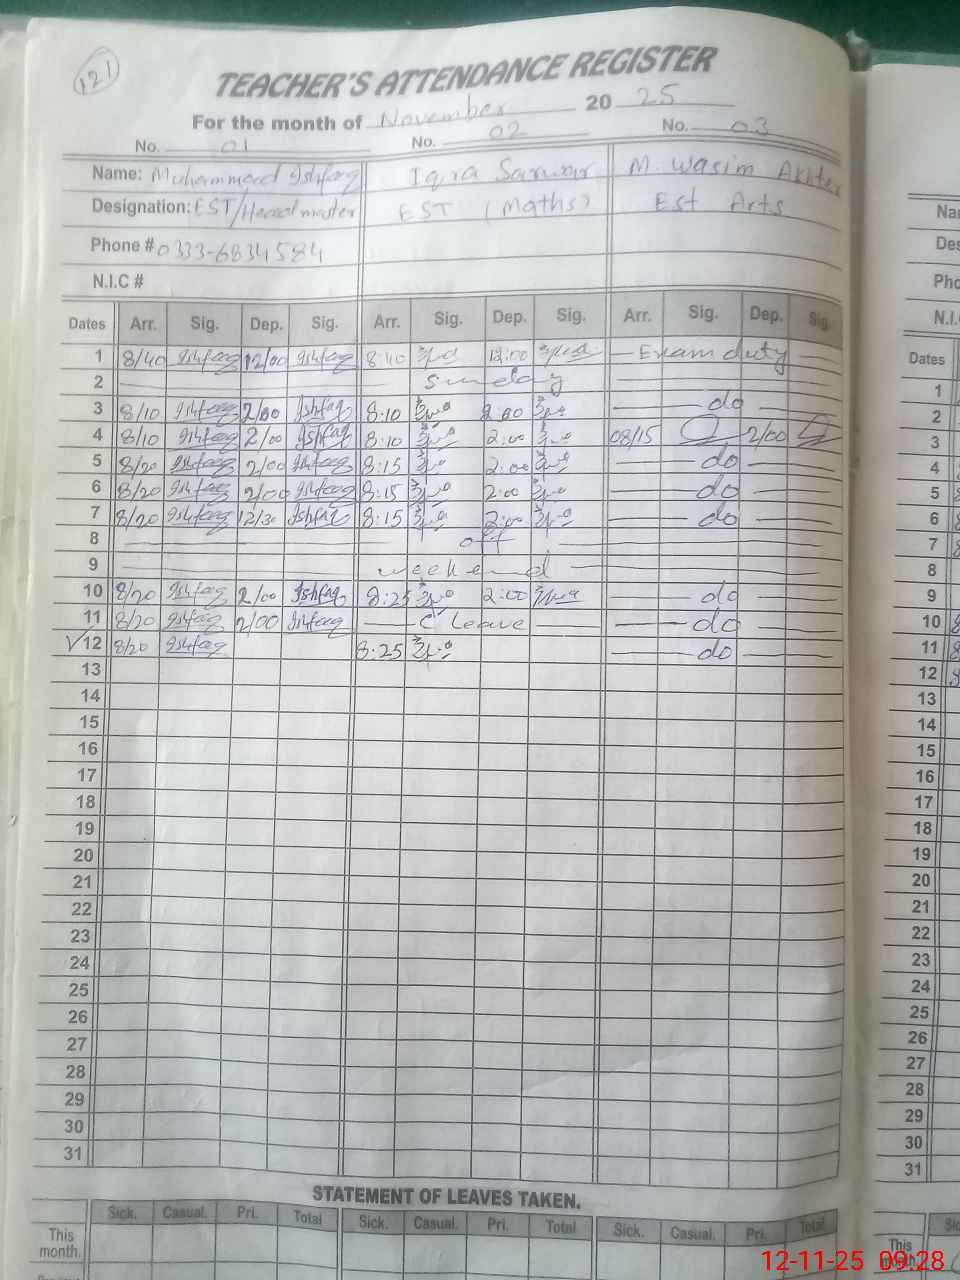 121
TEACHER'S ATTENDANCE REGISTER
For the month of November 2025
No. 01 No. 02 No. 03
Name: Muhammad Ishfaq Iqra Sarwar M. Wasim Akhter
Designation: EST/Headmaster EST (Maths) Est Arts
Phone # 0333-6834584
N.I.C #
Dates Arr. Sig. Dep. Sig. Arr. Sig. Dep. Sig. Arr. Sig. Dep. Sig.
1 8/40 Ishfaq 12/00 Ishfaq 8:40 12:00 Exam duty
2 Sunday
3 8/10 Ishfaq 2/00 Ishfaq 8:10 2:00 do
4 8/10 Ishfaq 2/00 Ishfaq 8:10 2:00 08/15 2/00
5 8/20 Ishfaq 2/00 Ishfaq 8:15 2:00 do
6 8/20 Ishfaq 2/00 Ishfaq 8:15 2:00 do
7 8/20 Ishfaq 12/30 Ishfaq 8:15 2:00 do
8 off
9 weekend
10 8/20 Ishfaq 2/00 Ishfaq 8:25 2:00 do
11 8/20 Ishfaq 2/00 Ishfaq C leave do
12 8/20 Ishfaq 8:25 do
13
14
15
16
17
18
19
20
21
22
23
24
25
26
27
28
29
30
31
STATEMENT OF LEAVES TAKEN.
Sick. Casual. Pri. Total Sick. Casual. Pri. Total Sick. Casual. Pri. Total
This month.
Dates
1
2
3
4
5
6
7
8
9
10
11
12
13
14
15
16
17
18
19
20
21
22
23
24
25
26
27
28
29
30
31
This
12-11-25 09:28